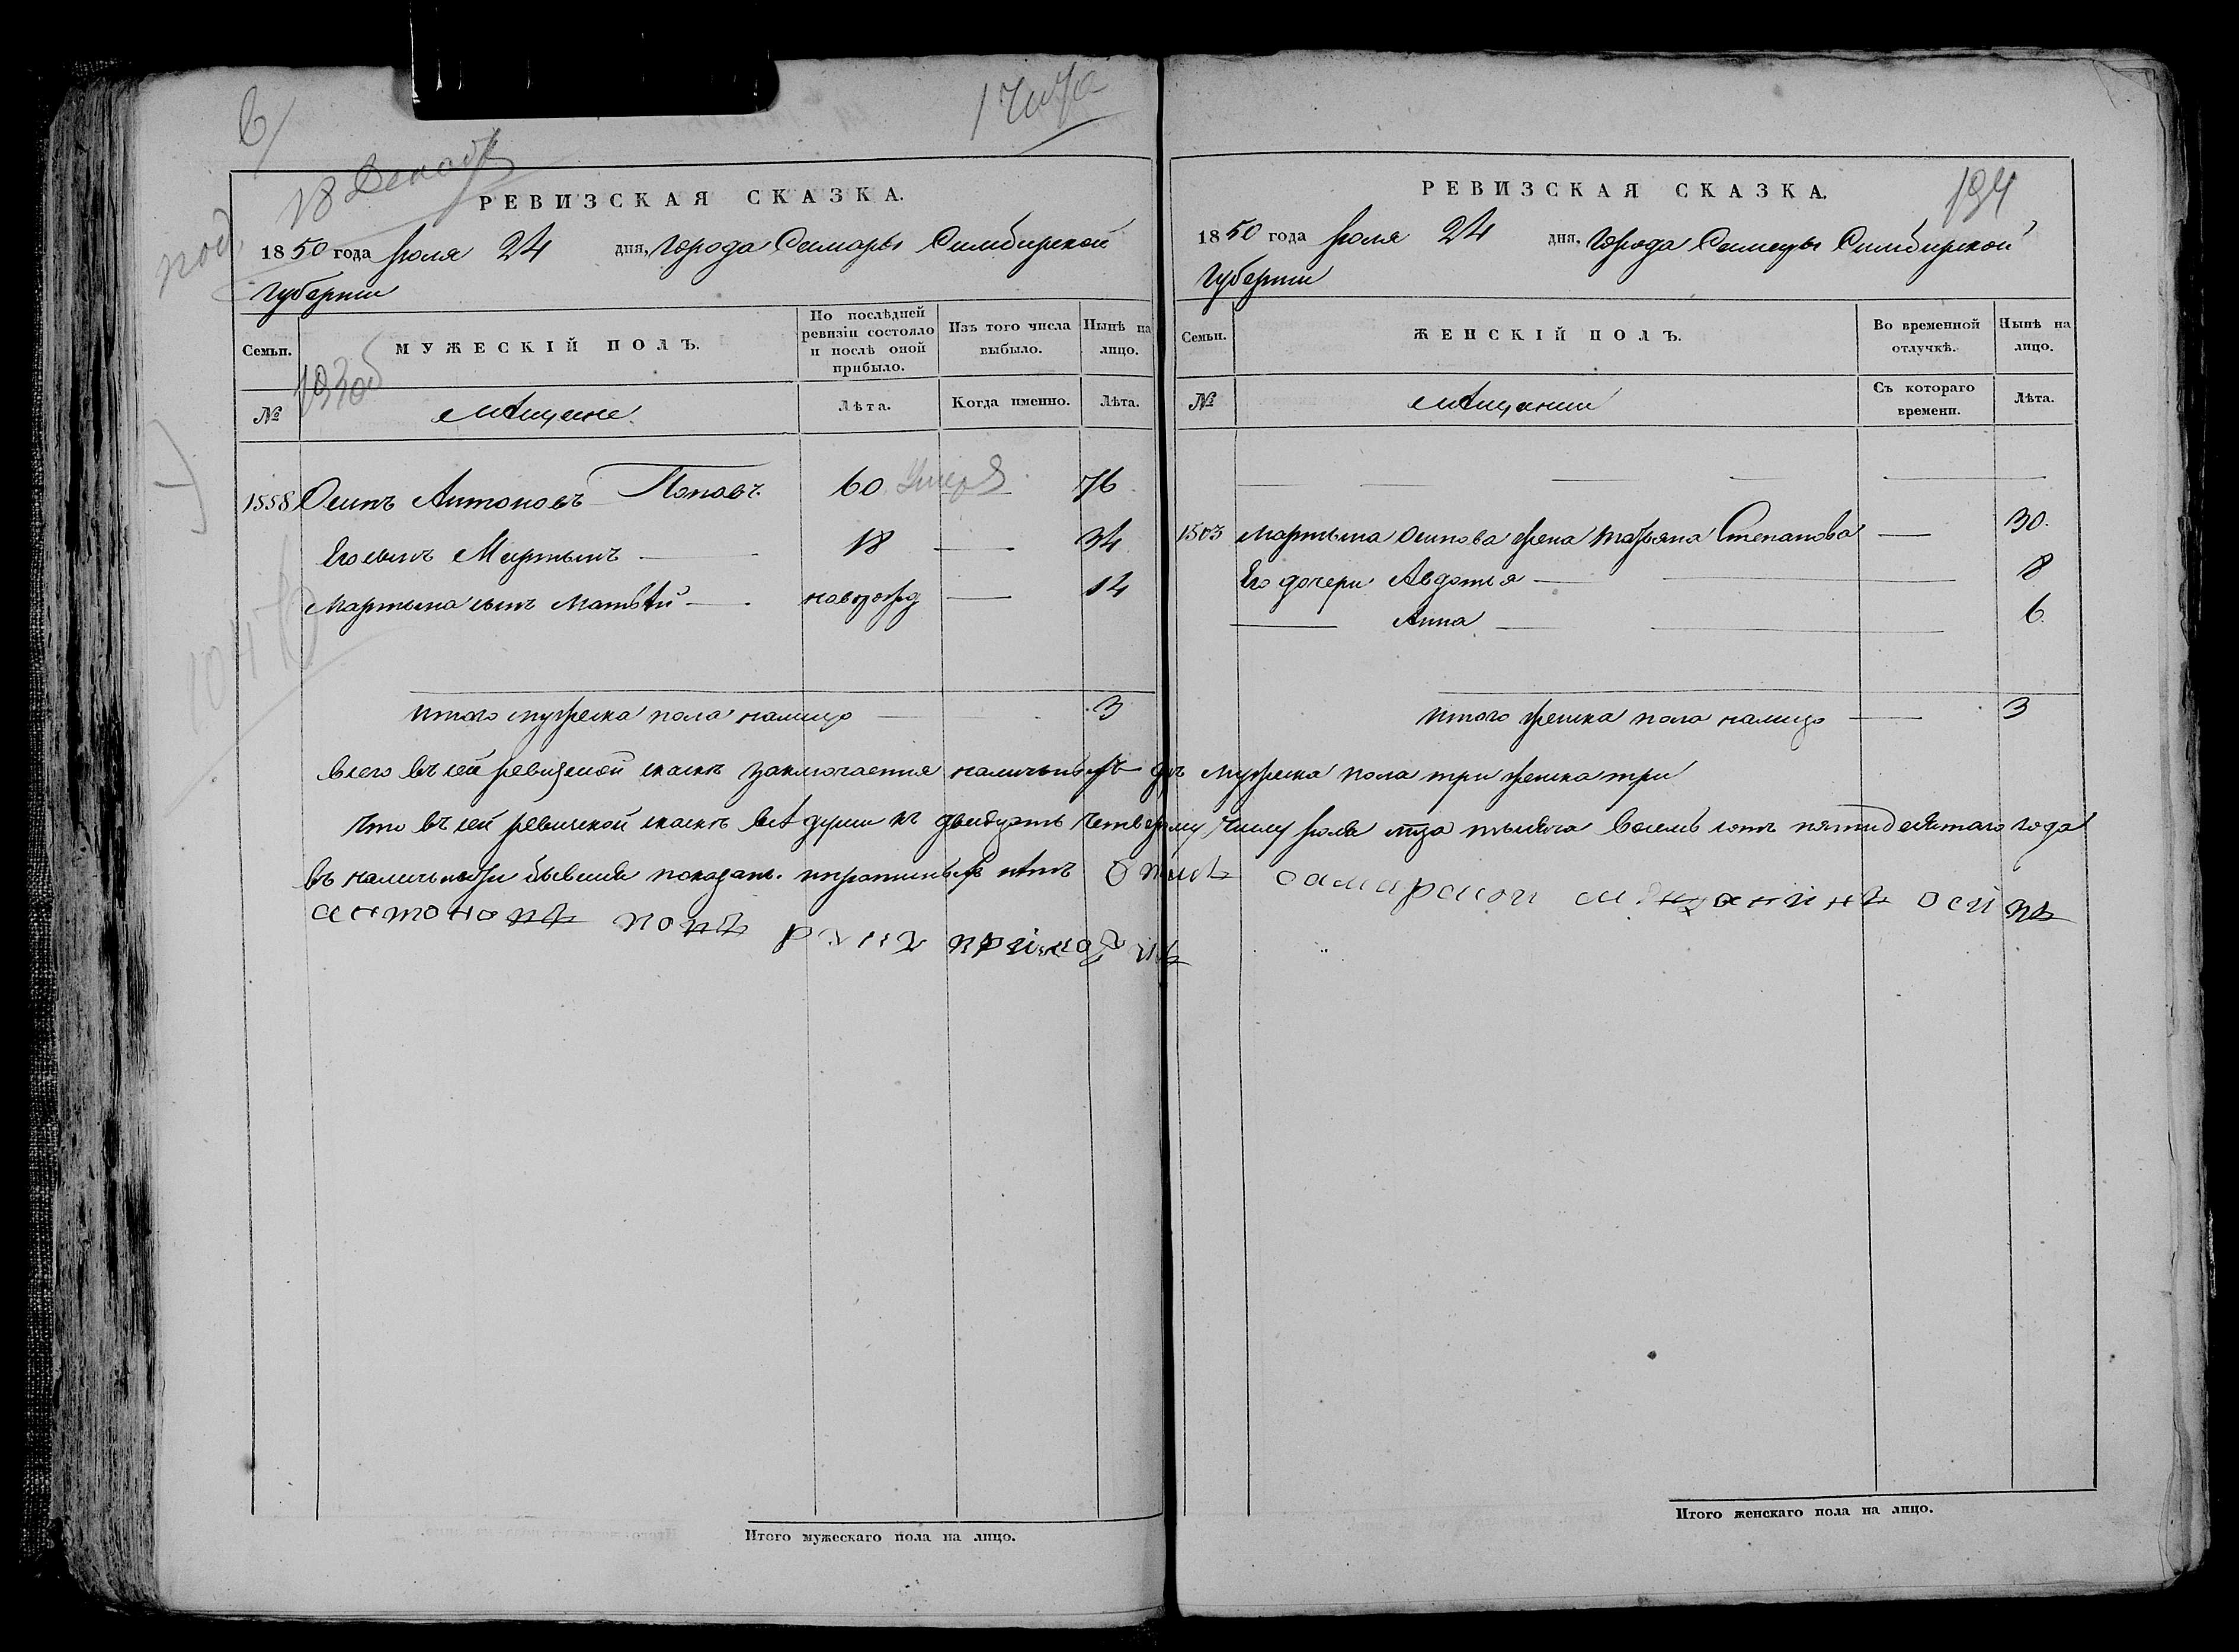 194
РЕВИЗСКАЯ СКАЗКА.
1850 года Июля 24 дня, Города Самары Симбирской
Губернии
Семьи.
МУЖЕСКІЙ ПОЛЪ.
По послѣдней ревизіи состояло и послѣ оной прибыло.
Изъ того числа выбыло.
Нынѣ на лицо.
№
мѣщане
Лѣта.
Когда именно.
Лѣта.
1558 Осипъ Антоновъ Поповъ 60 умеръ 76
Его сынъ Мартынъ — 18 — 34
Мартына сынъ Матвѣй — новорожд — 14
Итого мужеска пола налицо — 3
РЕВИЗСКАЯ СКАЗКА.
1850 года Июля 24 дня, Города Самары Симбирской
Губернии
Семьи.
ЖЕНСКІЙ ПОЛЪ.
Во временной отлучкѣ.
Нынѣ на лицо.
№
мѣщанки
Съ котораго времени.
Лѣта.
1503 Мартына Осипова жена Татьяна Степанова — 30.
Его дочери Авдотья — 8
— Анна — 6.
Итого женска пола налицо — 3
Всего въ сей ревизской сказкѣ заключается наличныхъ душъ мужеска пола три женска три
Что въ сей ревизской сказкѣ всѣ души къ двадцать четвертому числу Июля тысяча восемь сотъ пятидесятаго года
въ наличности бывшия показаны и прописныхъ нѣтъ самарскои мещанинъ осипъ
антоновъ поповъ руку приложилъ
Итого мужескаго пола на лицо.
Итого женскаго пола на лицо.